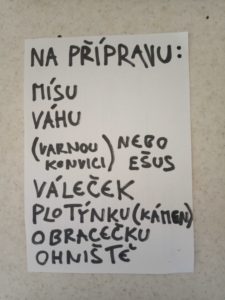 NA PŘÍPRAVU:
MÍSU
VÁHU
(VARNOU KONVICI) NEBO EŠUS
VÁLEČEK
PLOTÝNKU (KÁMEN)
OBRACEČKU
OHNIŠTĚ